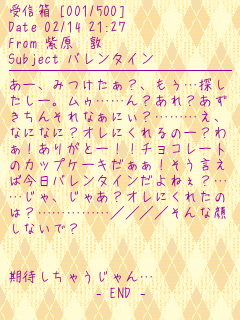 受信箱 [001/500]
Date 02/14 21:27
From 紫原　敦
Subject バレンタイン
あー、みつけたぁ?、もぅ…探し
たしー。ムゥ……ん?あれ?あず
きちんそれなぁにぃ?………え、
なになに?オレにくれるのー?わ
ぁ!ありがとー!!チョコレート
のカップケーキだぁぁ!そう言え
ば今日バレンタインだよねぇ?…
…じゃ、じゃあ?オレにくれたの
は?……………////そんな顔
しないで?
期待しちゃうじゃん…
- END -